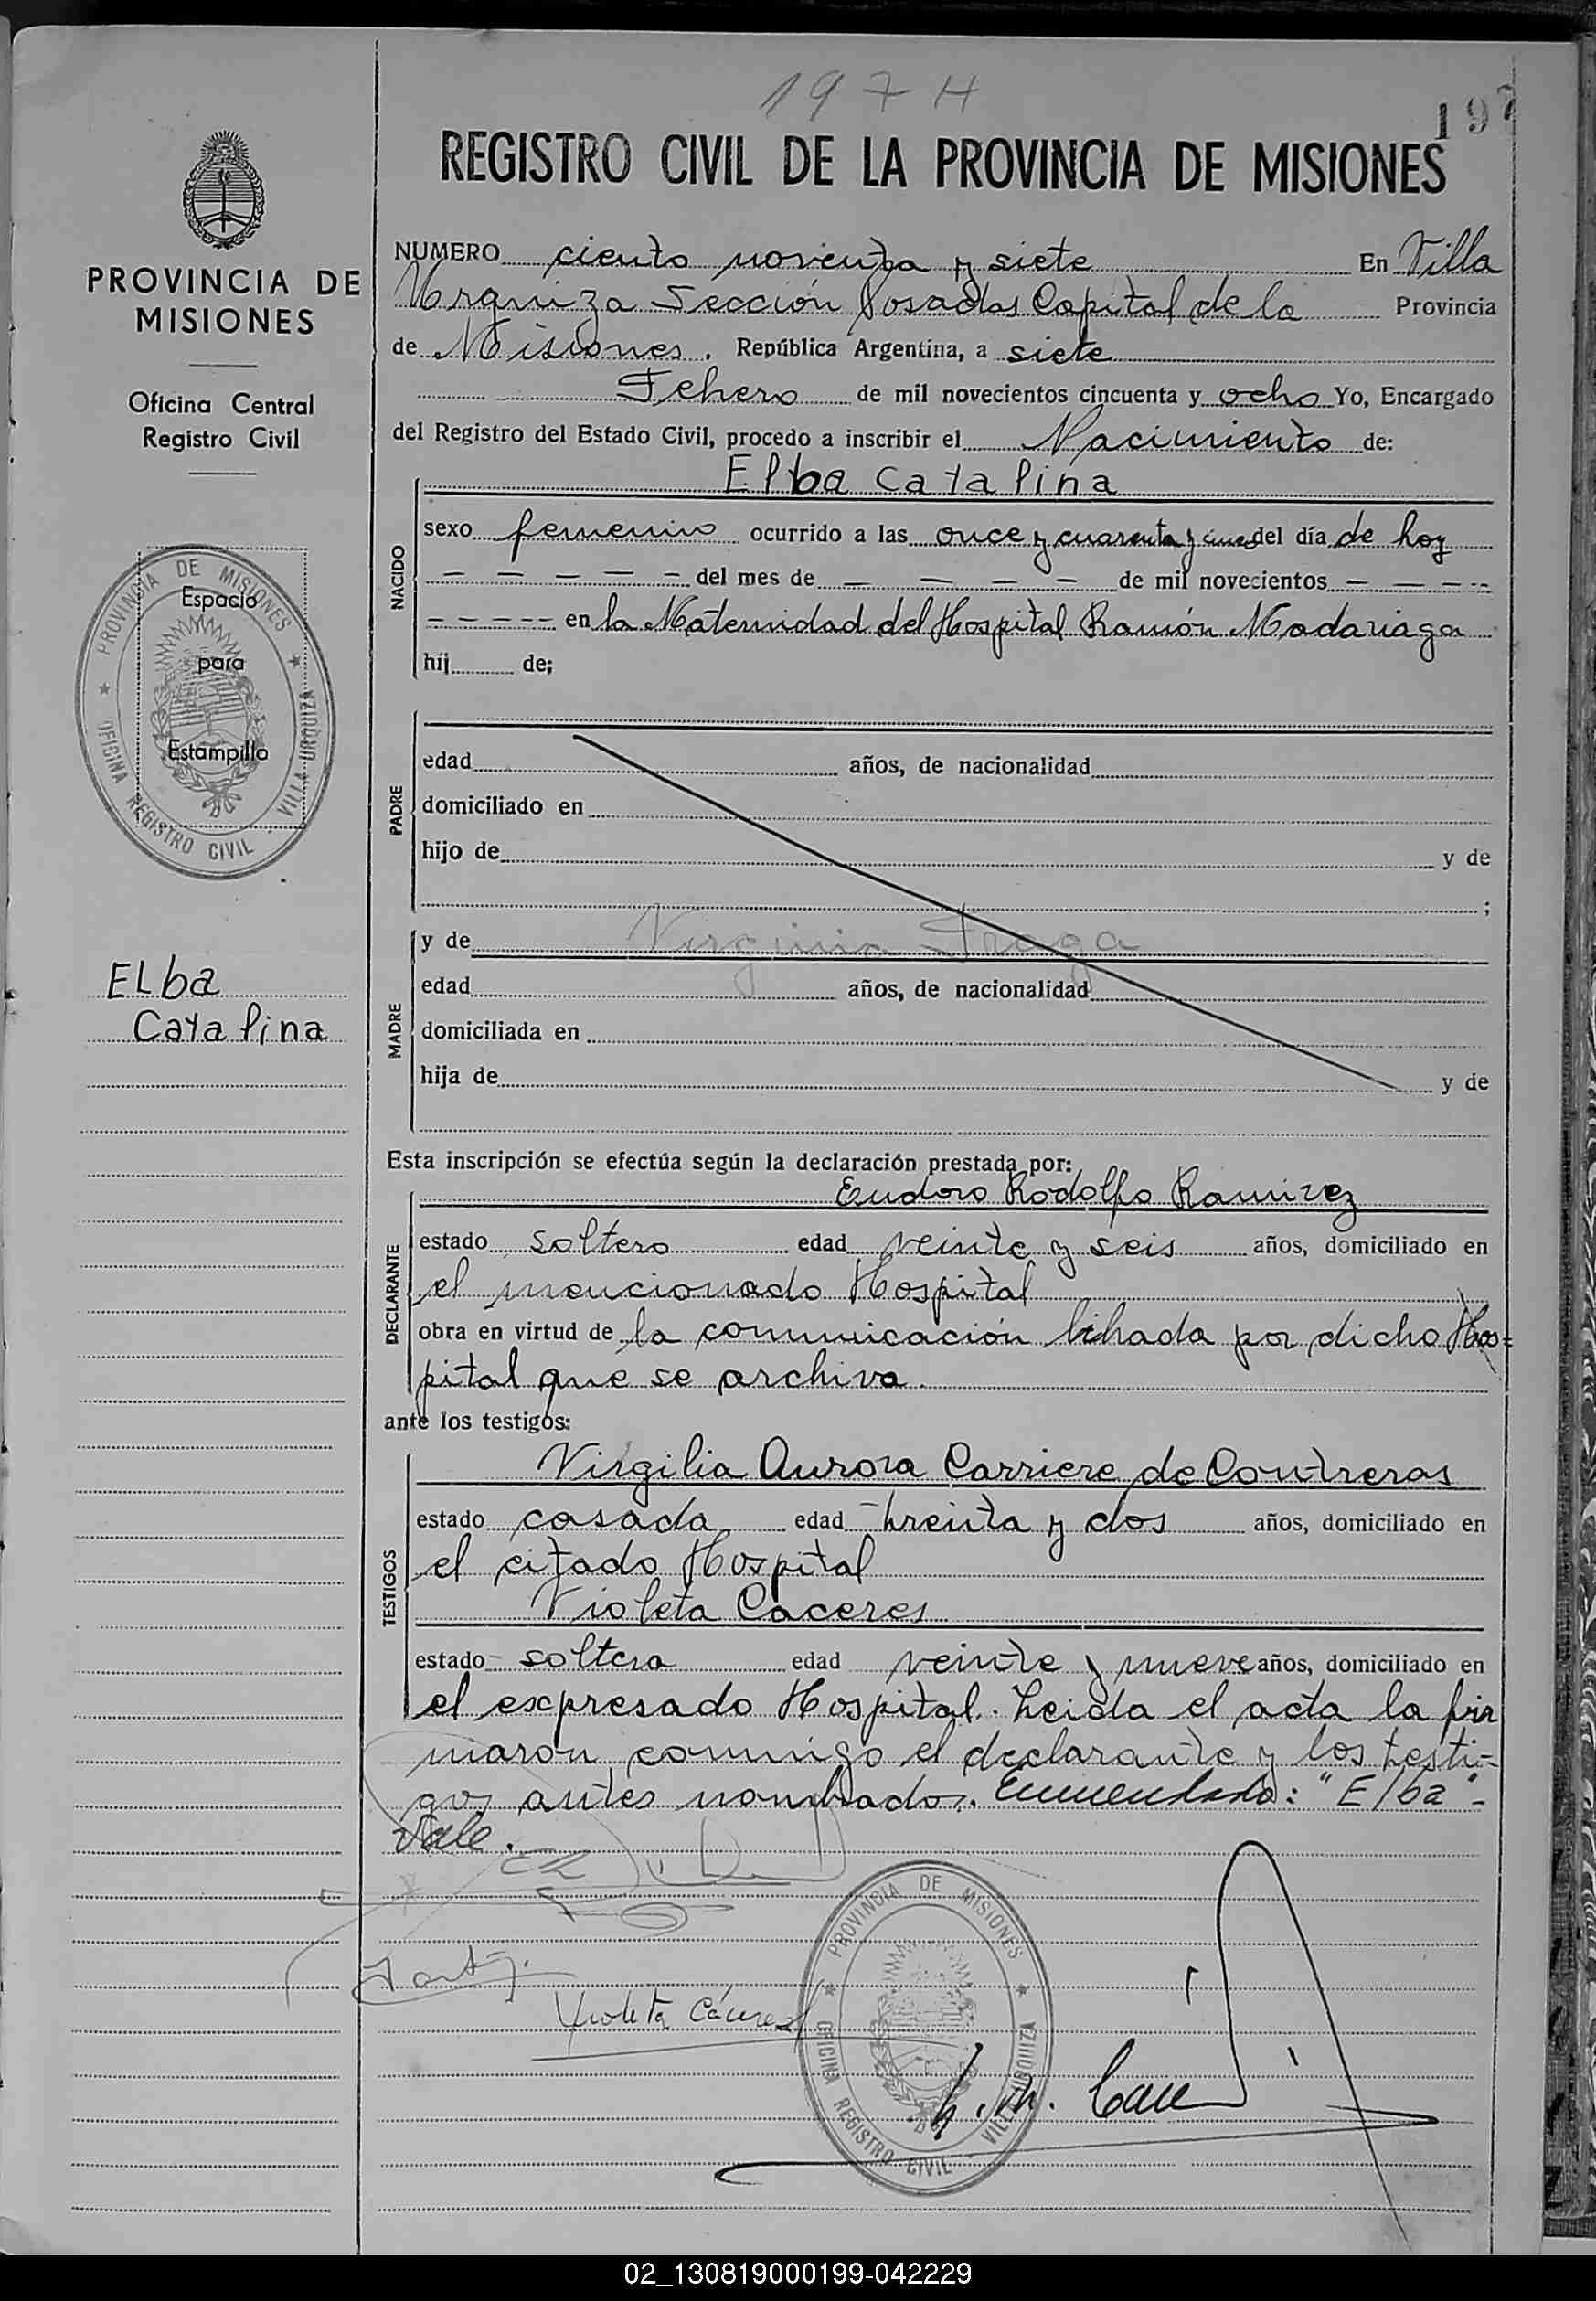 1974
197
REGISTRO CIVIL DE LA PROVINCIA DE MISIONES
PROVINCIA DE
MISIONES
Oficina Central
Registro Civil
NUMERO ciento noventa y siete En Villa
Urquiza Sección Posadas Capital de la Provincia
de Misiones. República Argentina, a siete
Febrero de mil novecientos cincuenta y ocho Yo, Encargado
del Registro del Estado Civil, procedo a inscribir el Nacimiento de:
NACIDO
Elba Catalina
sexo femenino ocurrido a las once y cuarenta y cinco del día de hoy
— — — — — del mes de — — — — de mil novecientos — — — - -
- - - - - en la Maternidad del Hospital Ramón Madariaga
hij de;
PROVINCIA DE MISIONES
OFICINA REGISTRO CIVIL - VILLA URQUIZA
Espacio
para
Estampilla
PADRE
edad años, de nacionalidad
domiciliado en
hijo de y de
;
MADRE
y de Virginia Fraga
edad años, de nacionalidad
domiciliada en
hija de y de
Elba
Catalina
Esta inscripción se efectúa según la declaración prestada por:
DECLARANTE
Eudoro Rodolfo Ramirez
estado soltero edad veinte y seis años, domiciliado en
el mencionado Hospital
obra en virtud de la comunicación librada por dicho Hos=
pital que se archiva.
ante los testigos:
TESTIGOS
Virgilia Aurora Carriere de Contreras
estado casada edad treinta y dos años, domiciliado en
el citado Hospital
Violeta Caceres
estado soltera edad veinte y nueve años, domiciliado en
el expresado Hospital. Leida el acta la fir
maron conmigo el declarante y los testi-
gos antes nombrados. Enmendado: "Elba" -
Vale.
Violeta Cáceres
PROVINCIA DE MISIONES
OFICINA REGISTRO CIVIL - VILLA URQUIZA
02_130819000199-042229